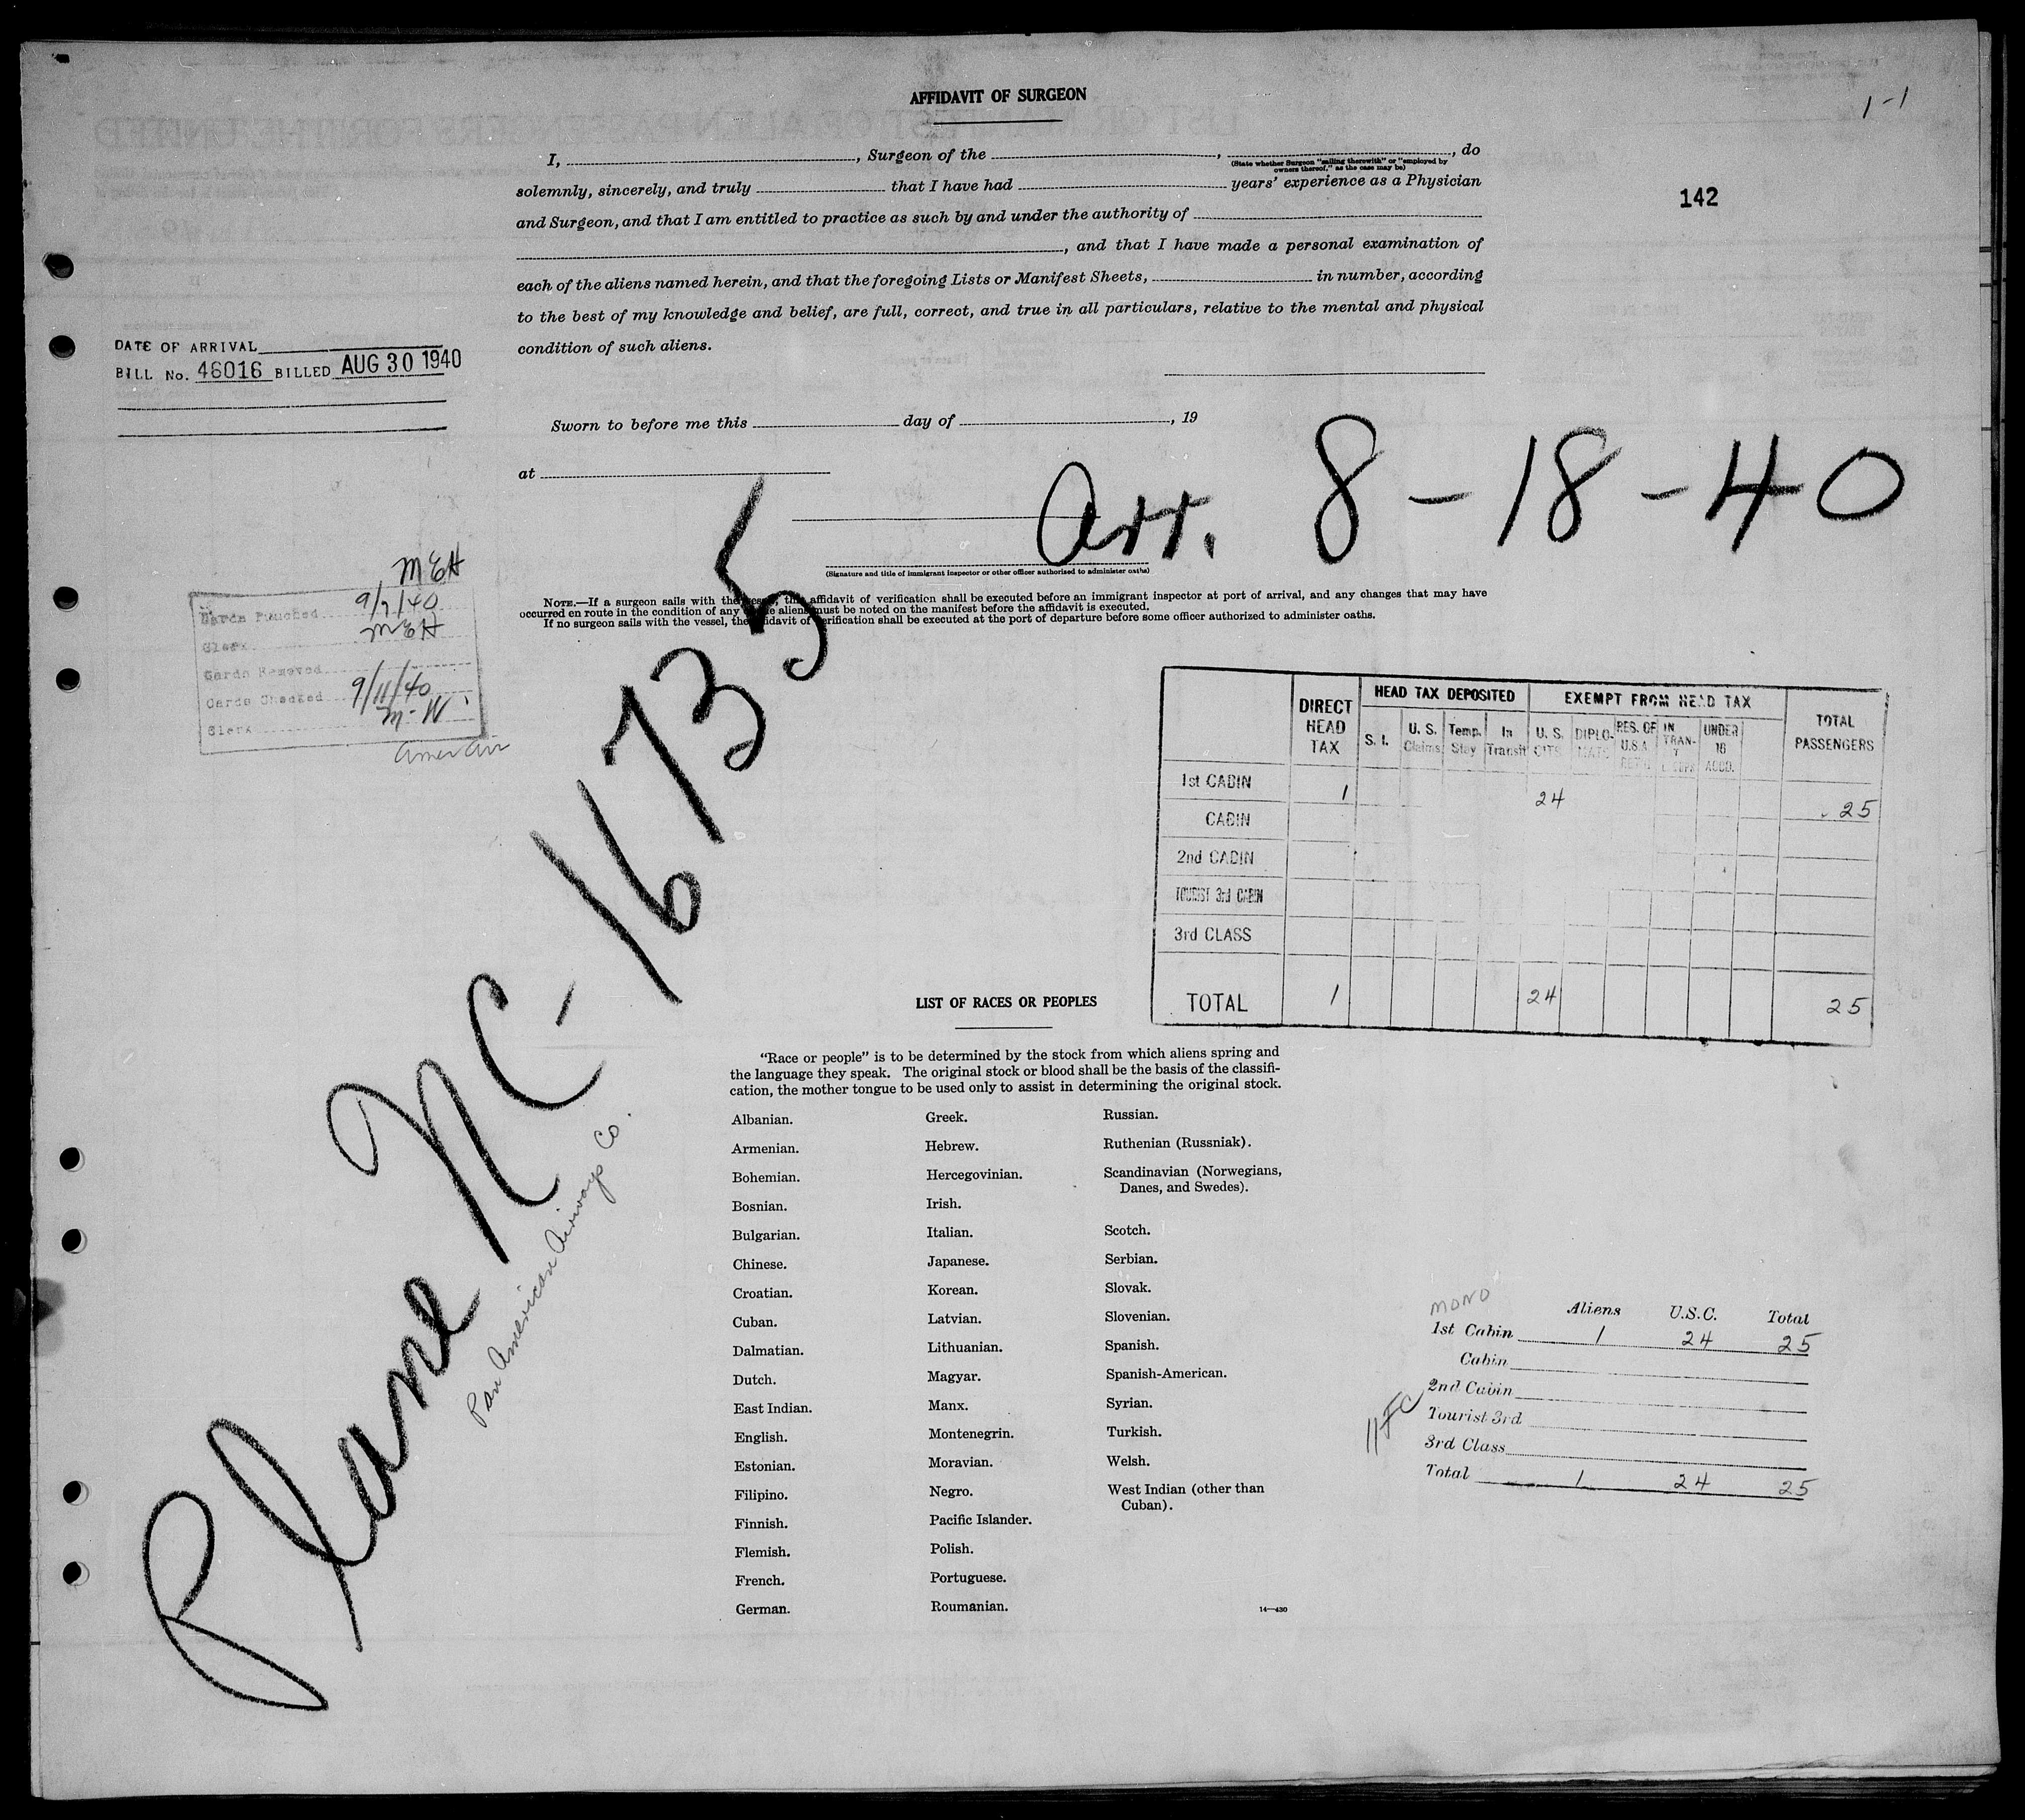 AFFIDAVIT OF SURGEON
1-1
142
I, , Surgeon of the , , do
(State whether Surgeon "sailing therewith" or "employed by
owners thereof," as the case may be)
solemnly, sincerely, and truly that I have had years' experience as a Physician
and Surgeon, and that I am entitled to practice as such by and under the authority of
, and that I have made a personal examination of
each of the aliens named herein, and that the foregoing Lists or Manifest Sheets, in number, according
to the best of my knowledge and belief, are full, correct, and true in all particulars, relative to the mental and physical
condition of such aliens.
DATE OF ARRIVAL
BILL No. 46016 BILLED AUG 30 1940
Sworn to before me this day of , 19
at
Arr. 8-18-40
(Signature and title of immigrant inspector or other officer authorized to administer oaths)
NOTE.—If a surgeon sails with the vessel, this affidavit of verification shall be executed before an immigrant inspector at port of arrival, and any changes that may have
occurred en route in the condition of any of the aliens must be noted on the manifest before the affidavit is executed.
If no surgeon sails with the vessel, the affidavit of verification shall be executed at the port of departure before some officer authorized to administer oaths.
MEH
Cards Punched 9/7/40
Clerk MEH
Cards Removed
Cards Checked 9/11/40
Clerk M-W
Amer Air
Plane NC-16735
Pan American Airways Co.
DIRECT HEAD TAX
HEAD TAX DEPOSITED
EXEMPT FROM HEAD TAX
TOTAL PASSENGERS
S. I.
U. S. Claims
Temp. Stay
In Transit
U. S. CITS
DIPLOMATS
RES. OF U.S.A. RET'G
IN TRAN-
UNDER 16 ACCD.
1st CABIN 1 24 25
CABIN
2nd CABIN
TOURIST 3rd CABIN
3rd CLASS
TOTAL 1 24 25
LIST OF RACES OR PEOPLES
"Race or people" is to be determined by the stock from which aliens spring and
the language they speak. The original stock or blood shall be the basis of the classifi-
cation, the mother tongue to be used only to assist in determining the original stock.
Albanian.
Armenian.
Bohemian.
Bosnian.
Bulgarian.
Chinese.
Croatian.
Cuban.
Dalmatian.
Dutch.
East Indian.
English.
Estonian.
Filipino.
Finnish.
Flemish.
French.
German.
Greek.
Hebrew.
Hercegovinian.
Irish.
Italian.
Japanese.
Korean.
Latvian.
Lithuanian.
Magyar.
Manx.
Montenegrin.
Moravian.
Negro.
Pacific Islander.
Polish.
Portuguese.
Roumanian.
Russian.
Ruthenian (Russniak).
Scandinavian (Norwegians,
Danes, and Swedes).
Scotch.
Serbian.
Slovak.
Slovenian.
Spanish.
Spanish-American.
Syrian.
Turkish.
Welsh.
West Indian (other than
Cuban).
14—430
MONO
Aliens U.S.C. Total
1st Cabin 1 24 25
Cabin
2nd Cabin
Tourist 3rd
3rd Class
Total 1 24 25